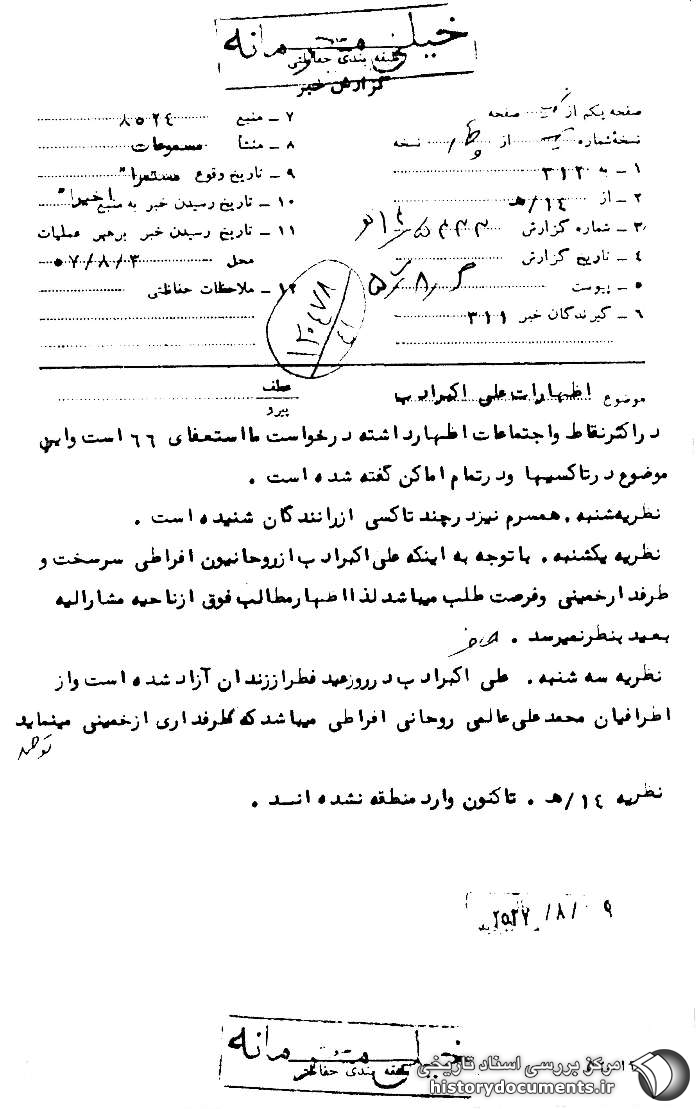 خیلی محرمانه
طبقه بندی حفاظتی
گزارش خبر
صفحه یکم از یک صفحه
نسخه شماره از نسخه
۱ ـ به ۳۱۲
۲ ـ از ۱۴/هـ
۳ ـ شماره گزارش
۴ ـ تاریخ گزارش
۵ ـ پیوست
۶ ـ گیرندگان خبر ۳۱۱
۷ ـ منبع ۸۵۲۴
۸ ـ منشأ مسموعات
۹ ـ تاریخ وقوع مستمرا"
۱۰ ـ تاریخ رسیدن خبر به منبع اخیرا"
۱۱ ـ تاریخ رسیدن خبر برهبر عملیات
محل ۵۷/۸/۳
۱۲ ـ ملاحظات حفاظتی
۱۲۰۴۷۸
موضوع اظهارات علی اکبرادب
عطف
پیرو
دراکثرنقاط واجتماعات اظهارداشته درخواست مااستعفای ۶۶ است واین
موضوع درتاکسیها ودرتمام اماکن گفته شده است .
نظریه شنبه . همسرم نیزدرچند تاکسی ازرانندگان شنیده است .
نظریه یکشنبه . باتوجه به اینکه علی اکبرادب ازروحانیون افراطی سرسخت و
طرفدارخمینی وفرصت طلب میباشد لذا اظهارمطالب فوق ازناحیه مشارالیه
بعید بنظرنمیرسد .
نظریه سه شنبه . علی اکبرادب درروزعید فطراززندان آزاد شده است واز
اطرافیان محمدعلی عالمی روحانی افراطی میباشدکه طرفداری ازخمینی مینماید
نظریه ۱۴/هـ . تاکنون وارد منطقه نشده انسد .
۲۵۳۷/۸/۰۹
خیلی محرمانه
طبقه بندی حفاظتی
مرکز بررسی اسناد تاریخی
historydocuments.ir